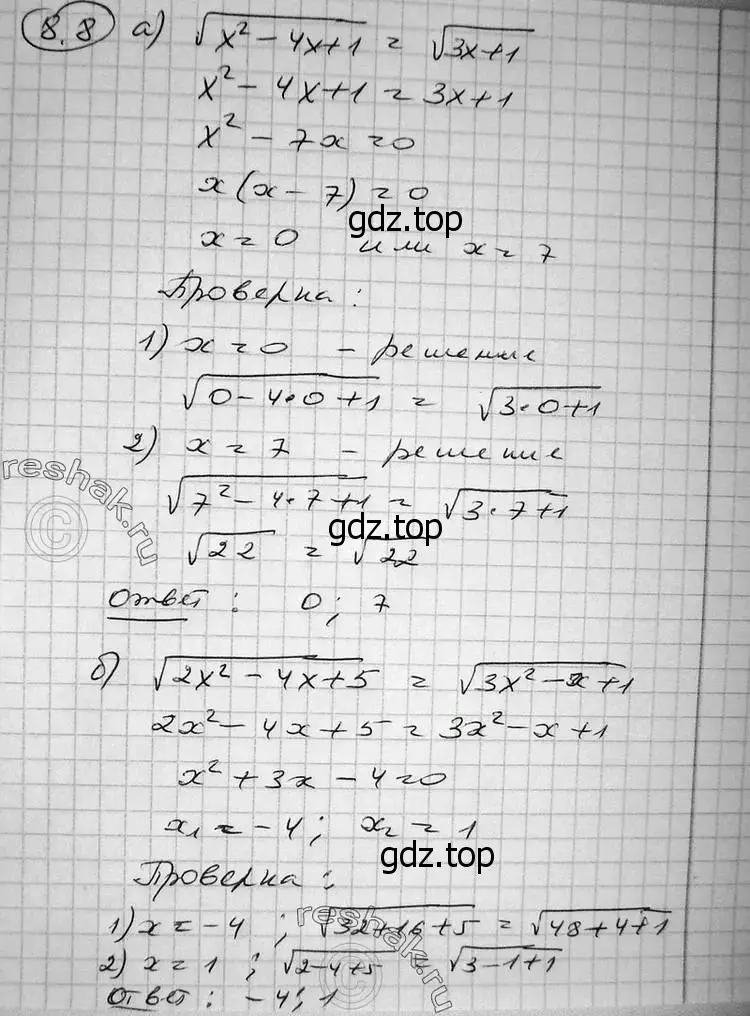 8.8 а) √(x² - 4x + 1) = √(3x + 1)
x² - 4x + 1 = 3x + 1
x² - 7x = 0
x(x - 7) = 0
gdz.top
x = 0 или x = 7
Проверка:
1) x = 0 - решение
√(0 - 4·0 + 1) = √(3·0 + 1)
2) x = 7 - решение
reshak.ru
√(7² - 4·7 + 1) = √(3·7 + 1)
gdz.top
√22 = √22
Ответ: 0; 7
б) √(2x² - 4x + 5) = √(3x² - x + 1)
2x² - 4x + 5 = 3x² - x + 1
x² + 3x - 4 = 0
x₁ = -4; x₂ = 1
gdz.top
Проверка:
1) x = -4; √(32 + 16 + 5) = √(48 + 4 + 1)
2) x = 1; √(2 - 4 + 5) = √(3 - 1 + 1)
reshak.ru
Ответ: -4; 1